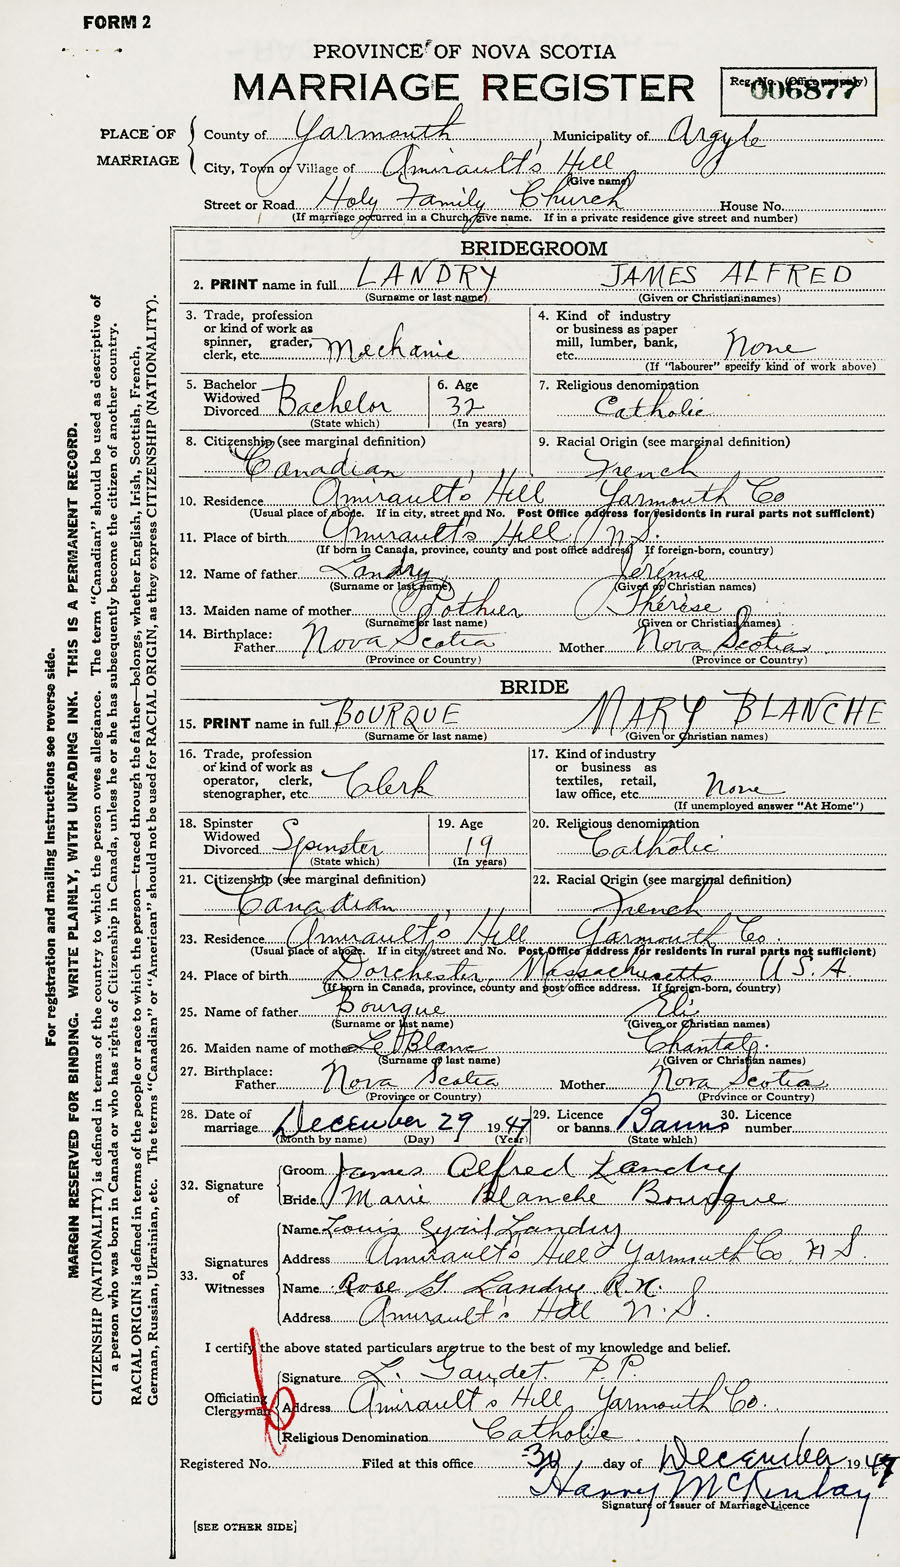 FORM 2
PROVINCE OF NOVA SCOTIA
MARRIAGE REGISTER
Reg. No. (Office use only)
006877
PLACE OF MARRIAGE
County of Yarmouth, Municipality of Argyle
City, Town or Village of Amirault's Hill
(Give name)
Street or Road Holy Family Church House No.
(If marriage occurred in a Church, give name. If in a private residence give street and number)
BRIDEGROOM
2. PRINT name in full LANDRY JAMES ALFRED
(Surname or last name) (Given or Christian names)
3. Trade, profession or kind of work as spinner, grader, clerk, etc. Mechanic
4. Kind of industry or business as paper mill, lumber, bank, etc. None
(If "labourer" specify kind of work above)
5. Bachelor Widowed Divorced Bachelor
(State which)
6. Age 32
(In years)
7. Religious denomination
Catholic
8. Citizenship (see marginal definition)
Canadian
9. Racial Origin (see marginal definition)
French
10. Residence Amirault's Hill Yarmouth Co
(Usual place of abode. If in city, street and No. Post Office address for residents in rural parts not sufficient)
11. Place of birth Amirault's Hill N.S.
(If born in Canada, province, county and post office address) If foreign-born, country)
12. Name of father Landry Jérémie
(Surname or last name) (Given or Christian names)
13. Maiden name of mother Pothier Thérèse
(Surname or last name) (Given or Christian names)
14. Birthplace: Father Nova Scotia Mother Nova Scotia
(Province or Country) (Province or Country)
BRIDE
15. PRINT name in full BOURQUE MARY BLANCHE
(Surname or last name) (Given or Christian names)
16. Trade, profession or kind of work as operator, clerk, stenographer, etc. Clerk
17. Kind of industry or business as textiles, retail, law office, etc. None
(If unemployed answer "At Home")
18. Spinster Widowed Divorced Spinster
(State which)
19. Age 19
(In years)
20. Religious denomination
Catholic
21. Citizenship (see marginal definition)
Canadian
22. Racial Origin (see marginal definition)
French
23. Residence Amirault's Hill Yarmouth Co.
(Usual place of abode. If in city, street and No. Post Office address for residents in rural parts not sufficient)
24. Place of birth Dorchester, Massachusetts U.S.A.
(If born in Canada, province, county and post office address. If foreign-born, country)
25. Name of father Bourque Eli
(Surname or last name) (Given or Christian names)
26. Maiden name of mother Le Blanc
(Surname or last name) (Given or Christian names)
27. Birthplace: Father Nova Scotia Mother Nova Scotia
(Province or Country) (Province or Country)
28. Date of marriage December 29 1947
(Month by name) (Day) (Year)
29. Licence or banns Banns
(State which)
30. Licence number
32. Signature of
Groom James Alfred Landry
Bride Marie Blanche Bourque
33. Signatures of Witnesses
Name Louis Cyril Landry
Address Amirault's Hill Yarmouth Co. N.S.
Name Rose G. Landry R.N.
Address Amirault's Hill N.S.
I certify the above stated particulars are true to the best of my knowledge and belief.
Officiating Clergyman
Signature L. Gaudet P.P.
Address Amirault's Hill, Yarmouth Co.
Religious Denomination Catholic
Registered No. Filed at this office 30 day of December 1947
Harry McKinlay
Signature of Issuer of Marriage Licence
[SEE OTHER SIDE]
For registration and mailing instructions see reverse side.
MARGIN RESERVED FOR BINDING. WRITE PLAINLY, WITH UNFADING INK. THIS IS A PERMANENT RECORD.
CITIZENSHIP (NATIONALITY) is defined in terms of the country to which the person owes allegiance. The term "Canadian" should be used as descriptive of
a person who was born in Canada or who has rights of Citizenship in Canada, unless he or she has subsequently become the citizen of another country.
RACIAL ORIGIN is defined in terms of the people or race to which the person—traced through the father—belongs, whether English, Irish, Scottish, French,
German, Russian, Ukrainian, etc. The terms "Canadian" or "American" should not be used for RACIAL ORIGIN, as they express CITIZENSHIP (NATIONALITY).